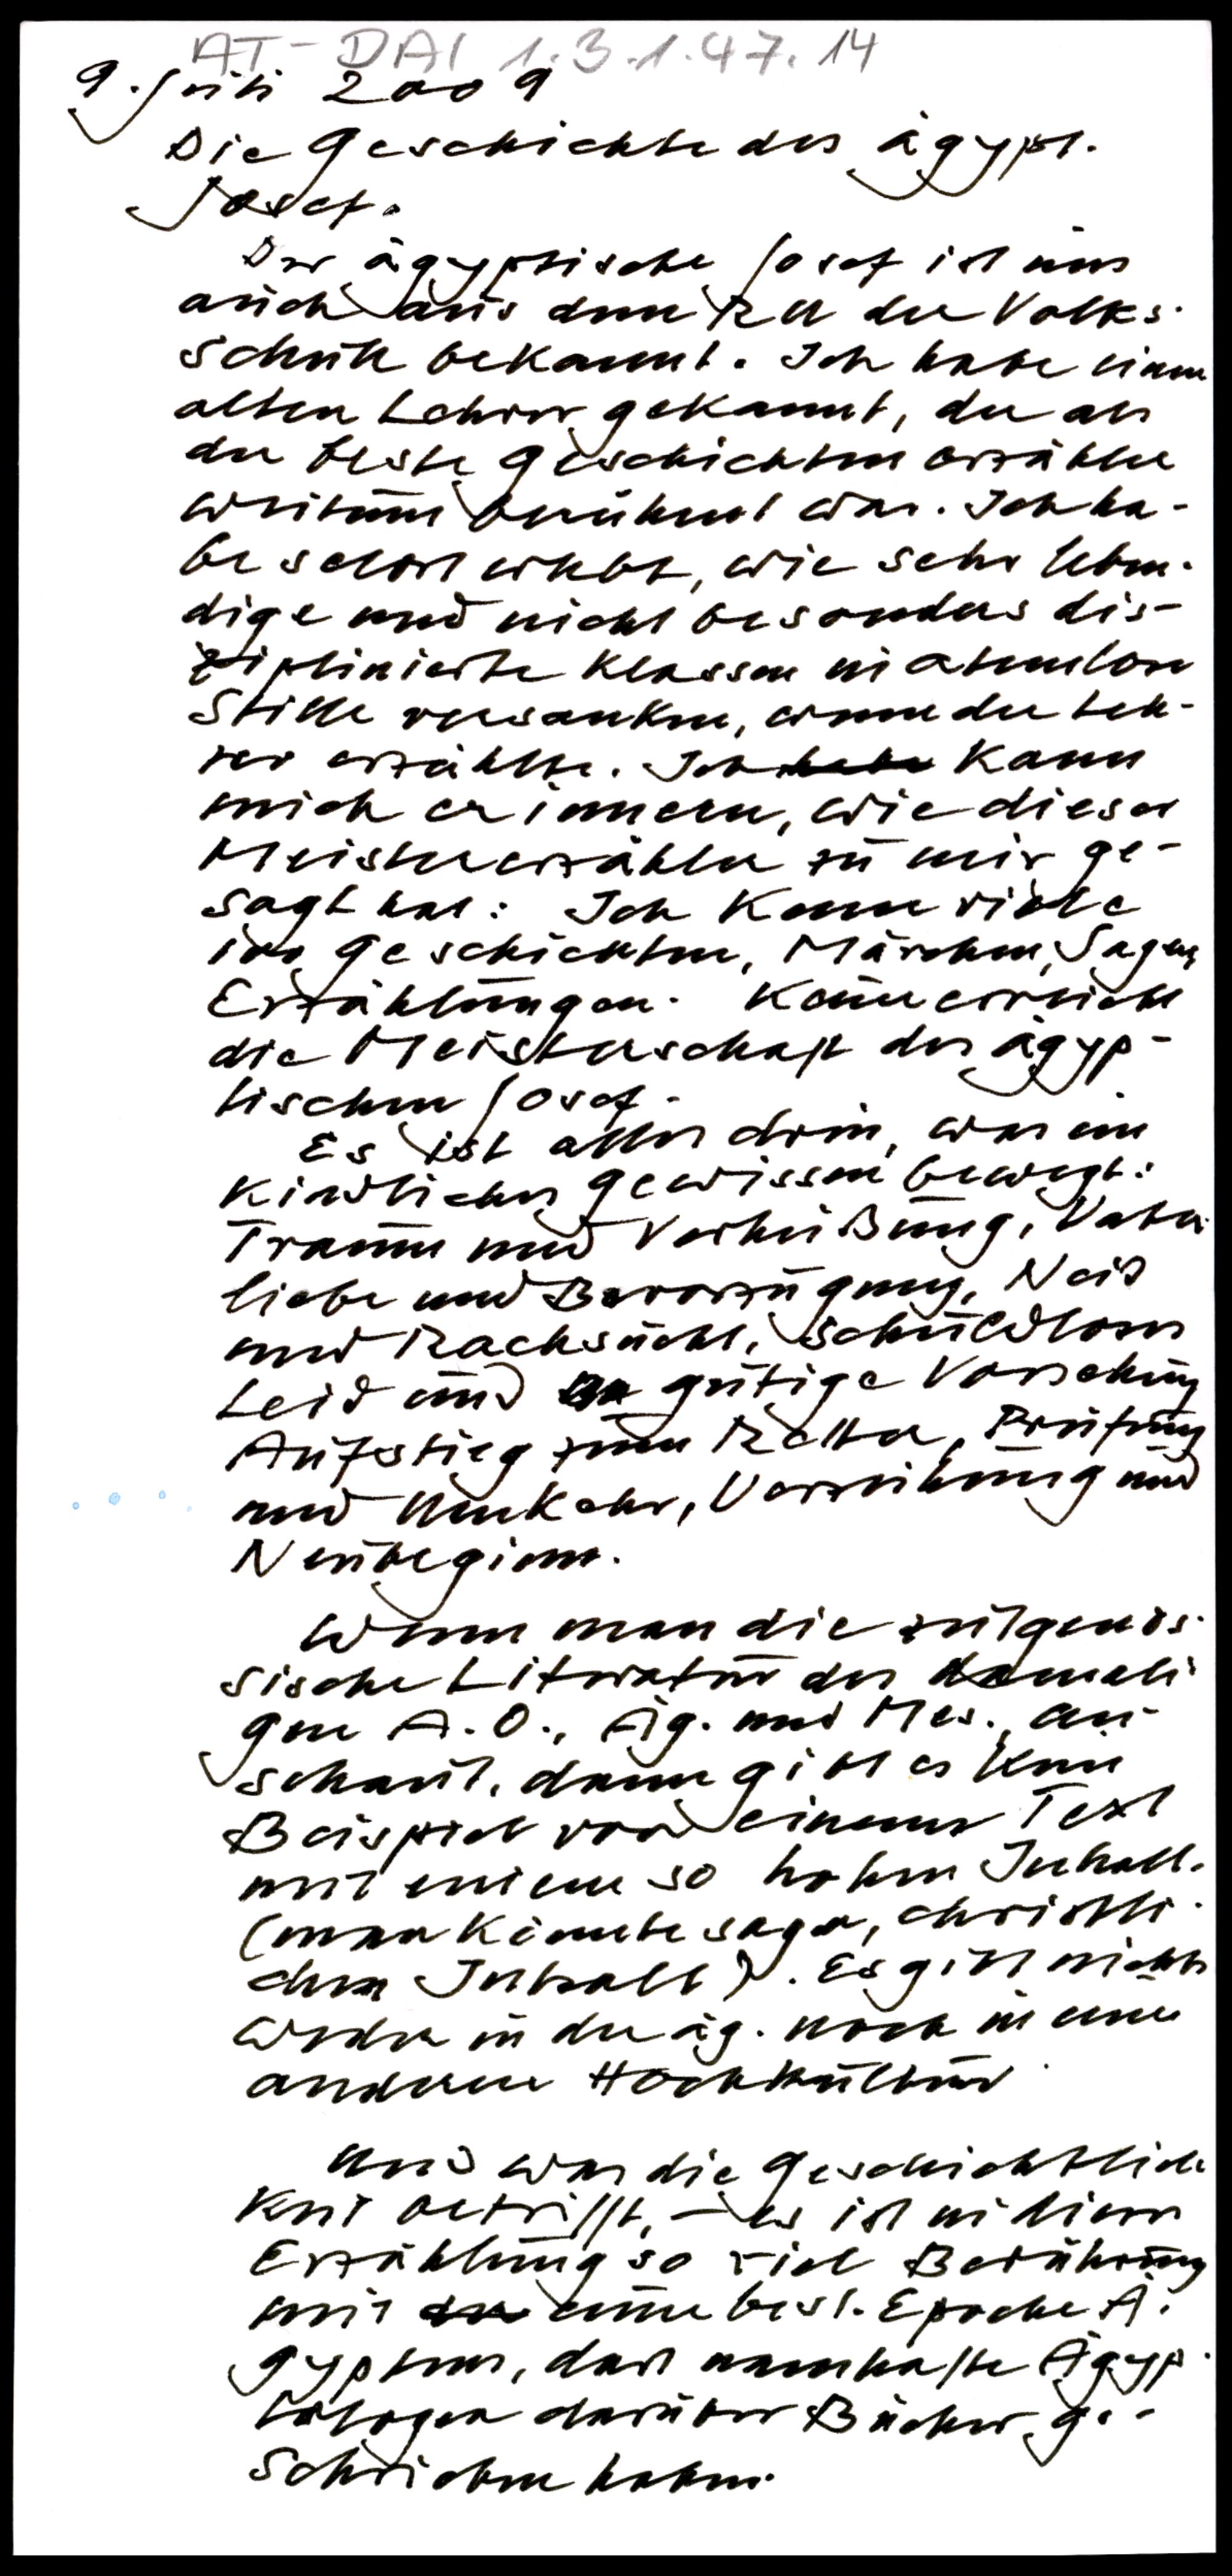 AT-DAI 1.3.1.47.14
9. Juli 2009
Die Geschichte des ägypt.
Josef.
Der ägyptische Josef ist uns
auch aus dem RU der Volks-
schule bekannt. Ich habe einen
alten Lehrer gekannt, der als
der beste Geschichtenerzähler
weitum berühmt war. Ich ha-
be selbst erlebt, wie sehr leben-
dige und nicht besonders dis-
ziplinierte Klassen in atemlose
Stille versanken, wenn der Leh-
rer erzählte. Ich habe kann
mich erinnern, wie dieser
Meistererzähler zu mir ge-
sagt hat: Ich kenne viele
Geschichten, Märchen, Sagen,
Erzählungen. Keine erreicht
die Meisterschaft des ägyp-
tischen Josef.
Es ist alles drin, was ein
kindliches Gewissen bewegt:
Traum und Verheißung, Vater-
liebe und Bevorzugung, Neid
und Rachsucht, schuldloses
Leid und gütige Vorsehung
Aufstieg zum Retter, Prüfung
und Umkehr, Verzeihung und
Neubeginn.
Wenn man die zeitgenös-
sische Literatur des damali-
gen A.O., Äg. und Mes., an-
schaut, dann gibt es kein
Beispiel von einem Text
mit einem so hohen Inhalt.
(man könnte sagen, christli-
chen Inhalt). Es gibt nichts
weder in der äg. noch in einer
anderen Hochkultur.
Und was die Geschichtlich-
keit betrifft, – es ist in dieser
Erzählung so viel Berührung
mit einer best. Epoche Ä-
gyptens, dass namhafte Ägyp-
tologen darüber Bücher ge-
schrieben haben.